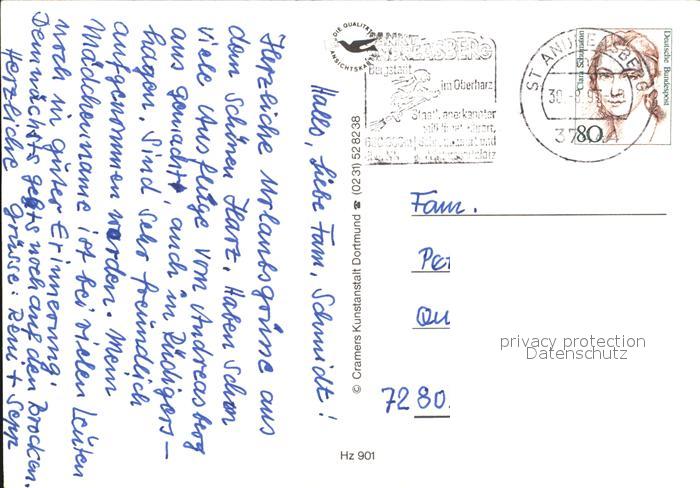 Hallo, liebe Fam. Schmidt!
Herzliche Urlaubsgrüsse aus
dem Schönen Harz. Haben Schon
viele Ausflüge von Andreasberg
aus gemacht, auch in Rüdigers-
hagen. Sind sehr freundlich
aufgenommen worden. Mein
Mädchenname ist bei vielen Leuten
noch in guter Erinnerung.
Demnächst gehts noch auf den Brocken.
Herzliche Grüsse: Reni + Sepp
DIE QUALITÄTS
ANSICHTSKARTE
© Cramers Kunstanstalt Dortmund ☎ (0231) 528238
Hz 901
ANDREASBERG
Bergstadt
im Oberharz
Staatl. anerkannter
ST ANDREASBERG
Clara Schumann
Deutsche Bundespost
80
Fam.
Pe
Qu
7280
privacy protection
Datenschutz